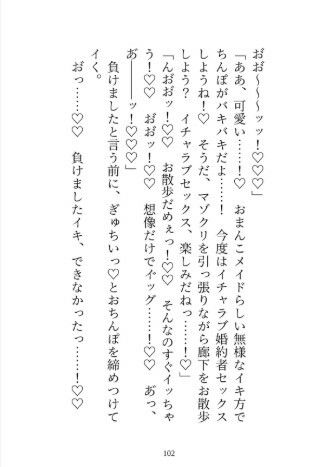 お゙お゙～～ッッ！♡♡♡」
「ああ、可愛い……！♡　おまんこメイドらしい無様なイキ方で
ちんぽがバキバキだよ……！　今度はイチャラブ婚約者セックス
しようね！♡　そうだ、マゾクリを引っ張りながら廊下をお散歩
しよう？　イチャラブセックス、楽しみだねっ……！♡」
「んお゙お゙ッ！♡♡　お散歩だめぇっ！♡♡　そんなのすぐイッちゃ
う！♡♡　お゙お゙ッ！♡♡　想像だけでイ゙ッグ……！♡♡　あ゙っ、
あ゙――ッ！♡♡♡」
　負けましたと言う前に、ぎゅちぃっ♡とおちんぽを締めつけて
イく。
　お゙っ……♡♡　負けましたイキ、できなかったっ……！♡♡
102